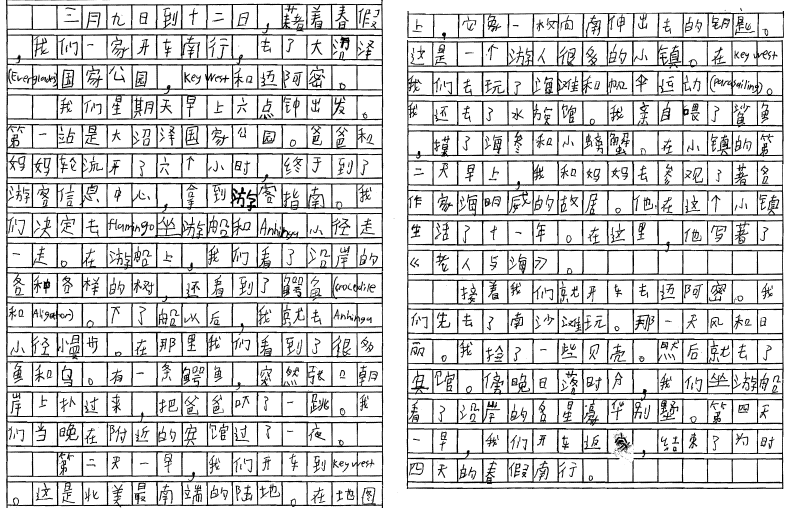 三月九日到十二日，藉着春假
，我们一家开车南行，去了大沼泽
(Everglades)国家公园，Key West和迈阿密。
我们星期天早上六点钟出发。
第一站是大沼泽国家公园。爸爸和
妈妈轮流开了六个小时，终于到了
游客信息中心，拿到游客指南。我
们决定去Flamingo坐游船和Anhinga小径走
一走。在游船上，我们看了沿岸的
各种各样的树，还看到了鳄鱼(crocodile
和Aligator)。下了船以后，我就去Anhinga
小径慢步。在那里我们看到了很多
鱼和鸟。有一条鳄鱼，突然张口朝
岸上扑过来，把爸爸吓了一跳。我
们当晚在附近的宾馆过了一夜。
第二天一早，我们开车到Key West
。这是北美最南端的陆地。在地图
上，它象一枚向南伸出去的钥匙。
这是一个游人很多的小镇。在Key West
我们去玩了海滩和帆伞运动(Parasailing)。
我还去了水族馆。我亲自喂了鲨鱼
，摸了海参和小螃蟹。在小镇的第
二天早上，我和妈妈去参观了著名
作家海明威的故居。他在这个小镇
生活了十一年。在这里，他写著了
《老人与海》。
接着我们就开车去迈阿密。我
们先去了南沙滩玩。那一天风和日
丽。我捡了一些贝壳。然后就去了
宾馆。傍晚日落时分，我们坐游船
看了沿岸的各星豪华别墅。第四天
一早，我们开车返家，结束了为时
四天的春假南行。